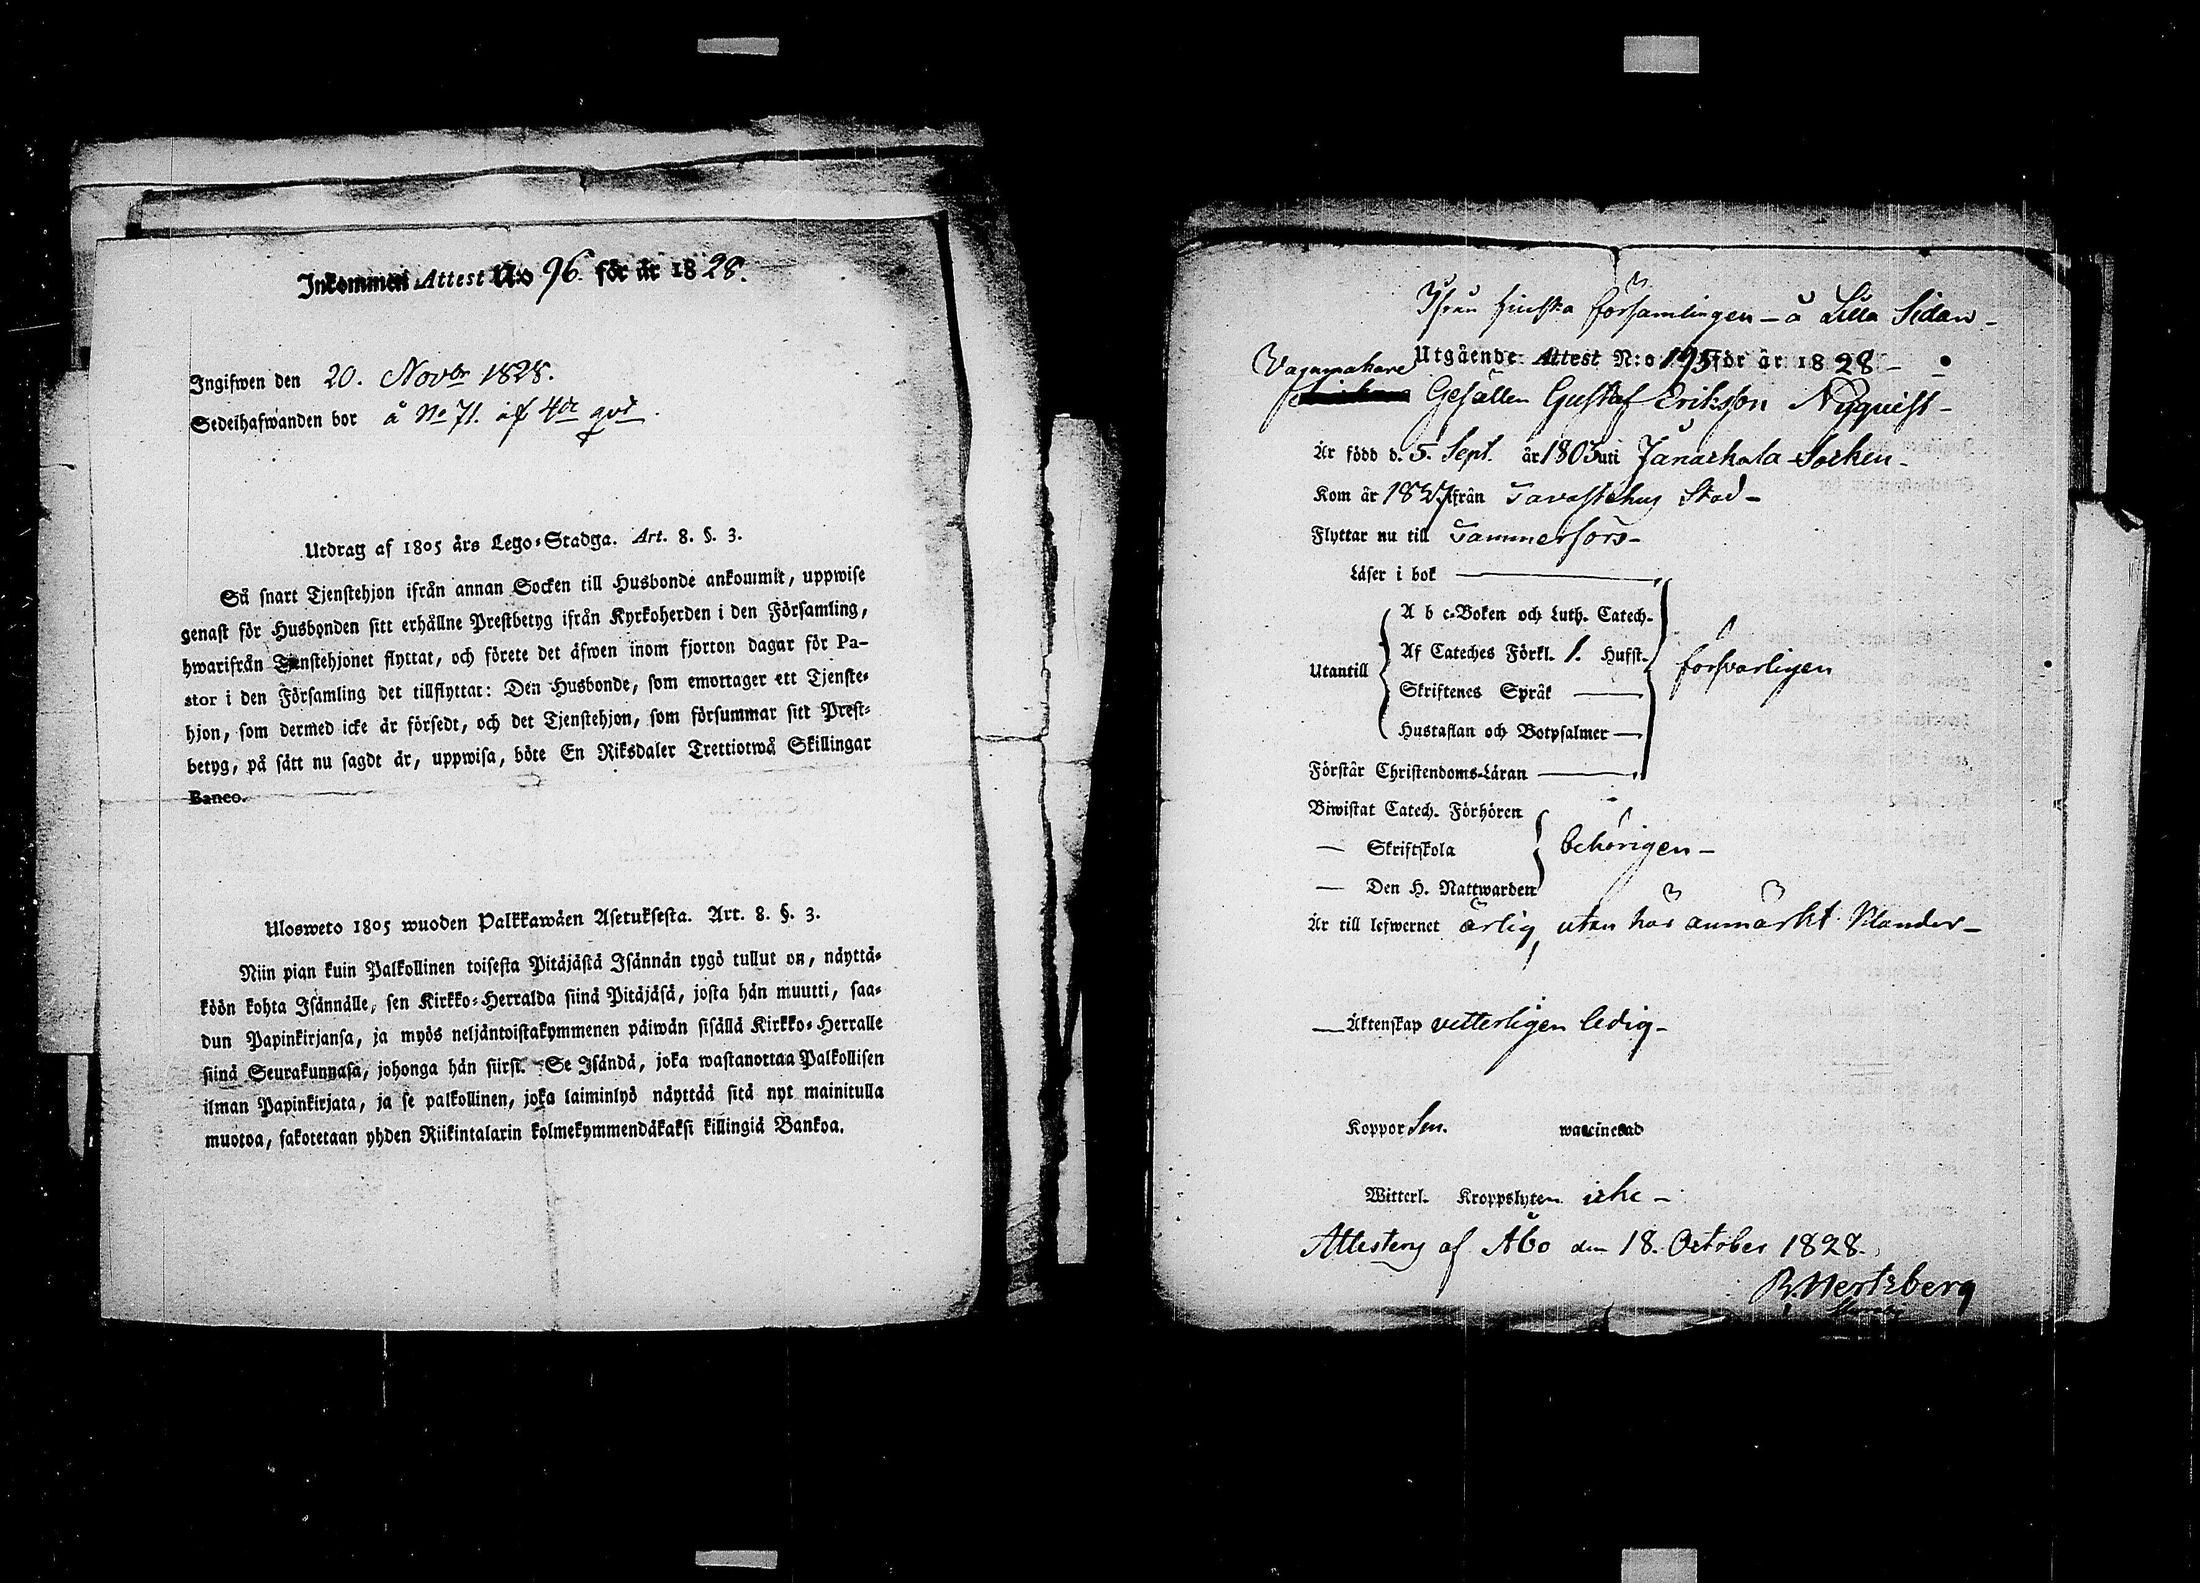 Inkommen Attest N:o 96. för år 1828.
Ingifwen den 20. Novbr 1828.
Sedelhafwanden bor å No 71. af 4de qvt.
Utdrag af 1805 års Lego-Stadga. Art. 8. §. 3.
Så snart Tjenstehjon ifrån annan Socken till Husbonde ankommit, uppwise
genast för Husbonden sitt erhållne Prestbetyg ifrån Kyrkoherden i den Församling,
hwarifrån Tjenstehjonet flyttat, och förete det äfwen inom fjorton dagar för Pa-
stor i den Församling det tillflyttat: Den Husbonde, som emottager ett Tjenste-
hjon, som dermed icke är försedt, och det Tjenstehjon, som försummar sitt Prest-
betyg, på sätt nu sagdt är, uppwisa, böte En Riksdaler Trettiotwå Skillingar
Banco.
Ulosweto 1805 wuoden Palkkawäen Asetuksesta. Art. 8. §. 3.
Niin pian kuin Palkollinen toisesta Pitäjästä Isännän tygö tullut on, näyttä-
köön kohta Isännälle, sen Kirkko-Herralda siinä Pitäjäsä, josta hän muutti, saa-
dun Papinkirjansa, ja myös neljäntoistakymmenen päiwän sisällä Kirkko-Herralle
siinä Seurakunnasa, johonga hän siirsi. Se Isändä, joka wastanottaa Palkollisen
ilman Papinkirjata, ja se palkollinen, joka laiminlyö näyttää sitä nyt mainitulla
muotoa, sakotetaan yhden Riikintalarin kolmekymmendäkaksi killingiä Bankoa.
Ifrån finska församlingen - å Lilla Sidan -
Utgående Attest N:o 195 för år 1828 -
Vagnmakare
Gesällen Gustaf Eriksson Nyquist -
Är född d. 5. Sept. år 1805 uti Janakkala Socken -
Kom år 1827 ifrån Tavastehus Stad -
Flyttar nu till Tammerfors -
Läser i bok
Utantill
A b c-Boken och Luth. Catech.
Af Cateches Förkl. 1. Hufst.
Skriftenes Språk
Hustaflan och Botpsalmer
försvarligen
Förstår Christendoms-Läran
Biwistat Catech. Förhören
— Skriftskola
— Den H. Nattwarden
behörigen -
Är till lefwernet ärlig, utan här anmärkt klander -
— Äktenskap vetterligen ledig -
Koppor Sen. waccinerad
Witterl. Kroppslyten icke -
Attesteras af Åbo den 18. October 1828.
R. Hertzberg